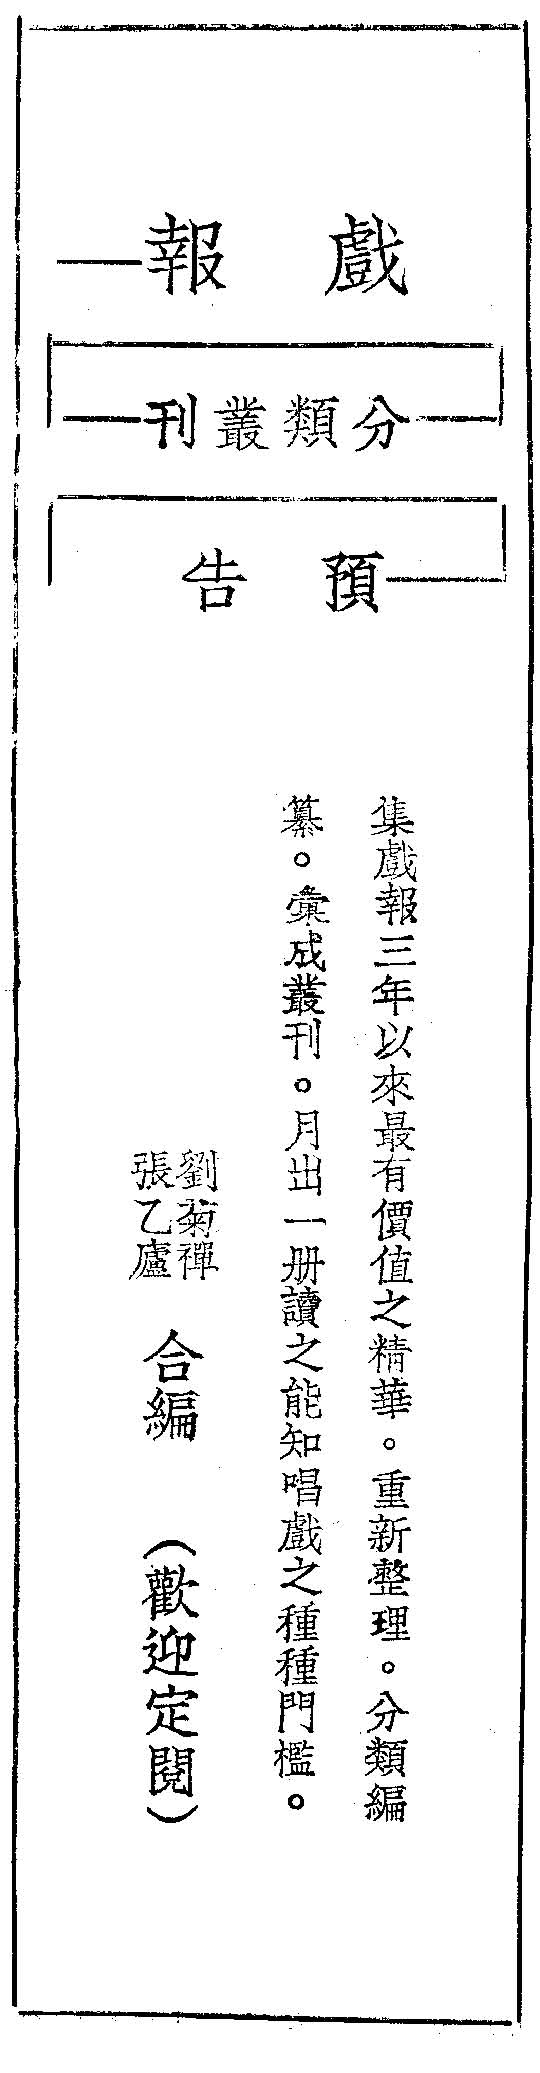 戲報
分類叢刊
預告
集戲報三年以來最有價值之精華。重新整理。分類編
纂。彙成叢刊。月出一册讀之能知唱戲之種種門檻。
劉菊禪
張乙廬
合編
（歡迎定閱）